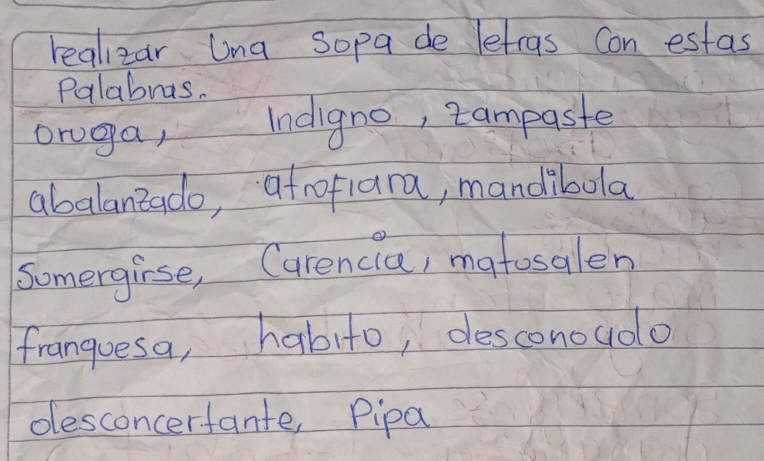 realizar Una sopa de letras Con estas
Palabras.
oruga, Indigno, zampaste
abalanzado, atrofiara, mandibula
sumergirse, Carencia, matusalen
franquesa, habito, desconocido
desconcertante, Pipa